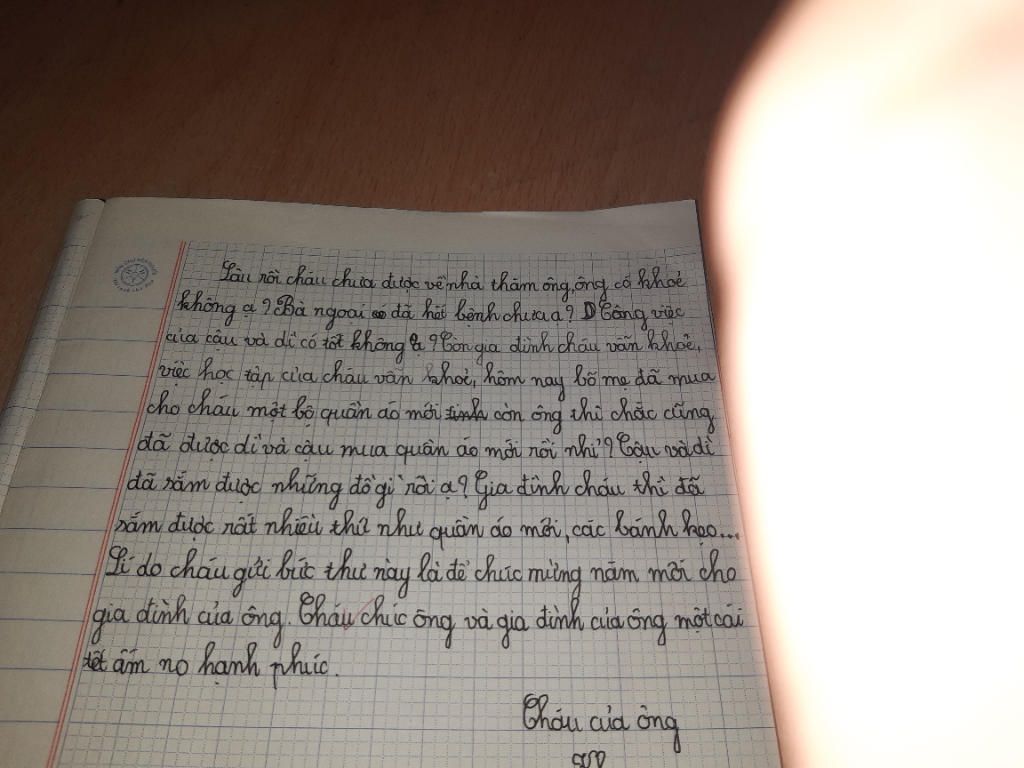 Lâu rồi cháu chưa được về nhà thăm ông, ông có khoẻ
không ạ? Bà ngoại đã hết bệnh chưa ạ? Công việc
của cậu và dì có tốt không ạ? Còn gia đình cháu vẫn khoẻ,
việc học tập của cháu vẫn khoẻ, hôm nay bố mẹ đã mua
cho cháu một bộ quần áo mới tinh còn ông thì chắc cũng
đã được dì và cậu mua quần áo mới rồi nhỉ? Cậu và dì
đã sắm được những đồ gì rồi ạ? Gia đình cháu thì đã
sắm được rất nhiều thứ như quần áo mới, các bánh kẹo...
Lí do cháu gửi bức thư này là để chúc mừng năm mới cho
gia đình của ông. Cháu chúc ông và gia đình của ông một cái
tết ấm no hạnh phúc.
Cháu của ông